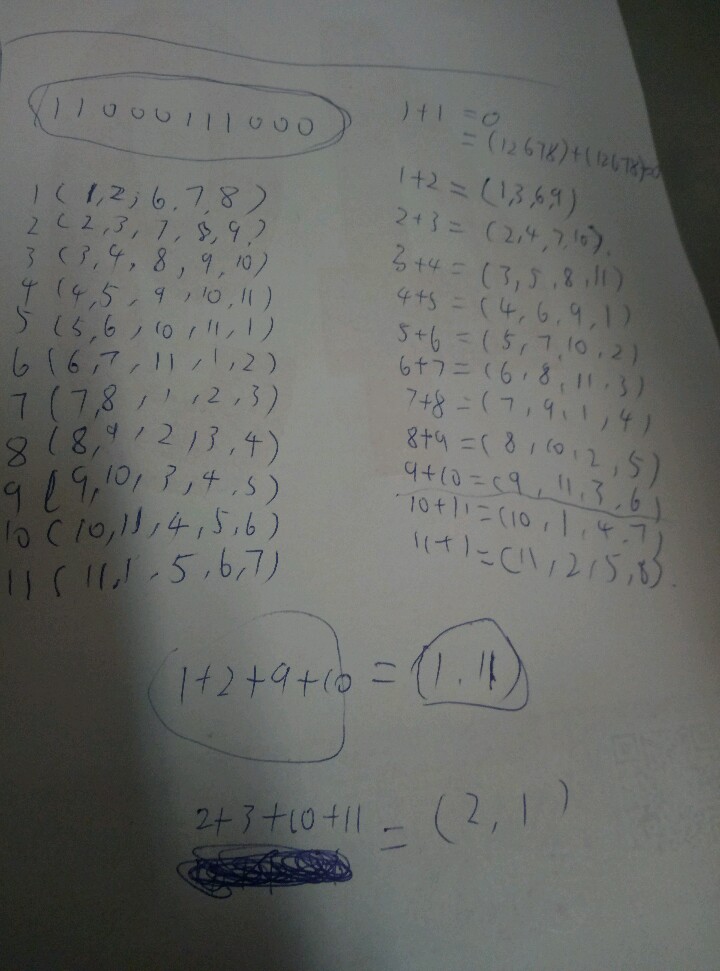 11000111000
1 (1,2,6,7,8)
2 (2,3,7,8,9)
3 (3,4,8,9,10)
4 (4,5,9,10,11)
5 (5,6,10,11,1)
6 (6,7,11,1,2)
7 (7,8,1,2,3)
8 (8,9,2,3,4)
9 (9,10,3,4,5)
10 (10,11,4,5,6)
11 (11,1,5,6,7)
1+1 =0
= (12678)+(12678)=0
1+2 = (1,3,6,9)
2+3 = (2,4,7,10)
3+4 = (3,5,8,11)
4+5 = (4,6,9,1)
5+6 = (5,7,10,2)
6+7 = (6,8,11,3)
7+8 = (7,9,1,4)
8+9 = (8,10,2,5)
9+10 = (9,11,3,6)
10+11 = (10,1,4,7)
11+1 = (11,2,5,8)
1+2+9+10 = (1.11)
2+3+10+11 = (2,1)